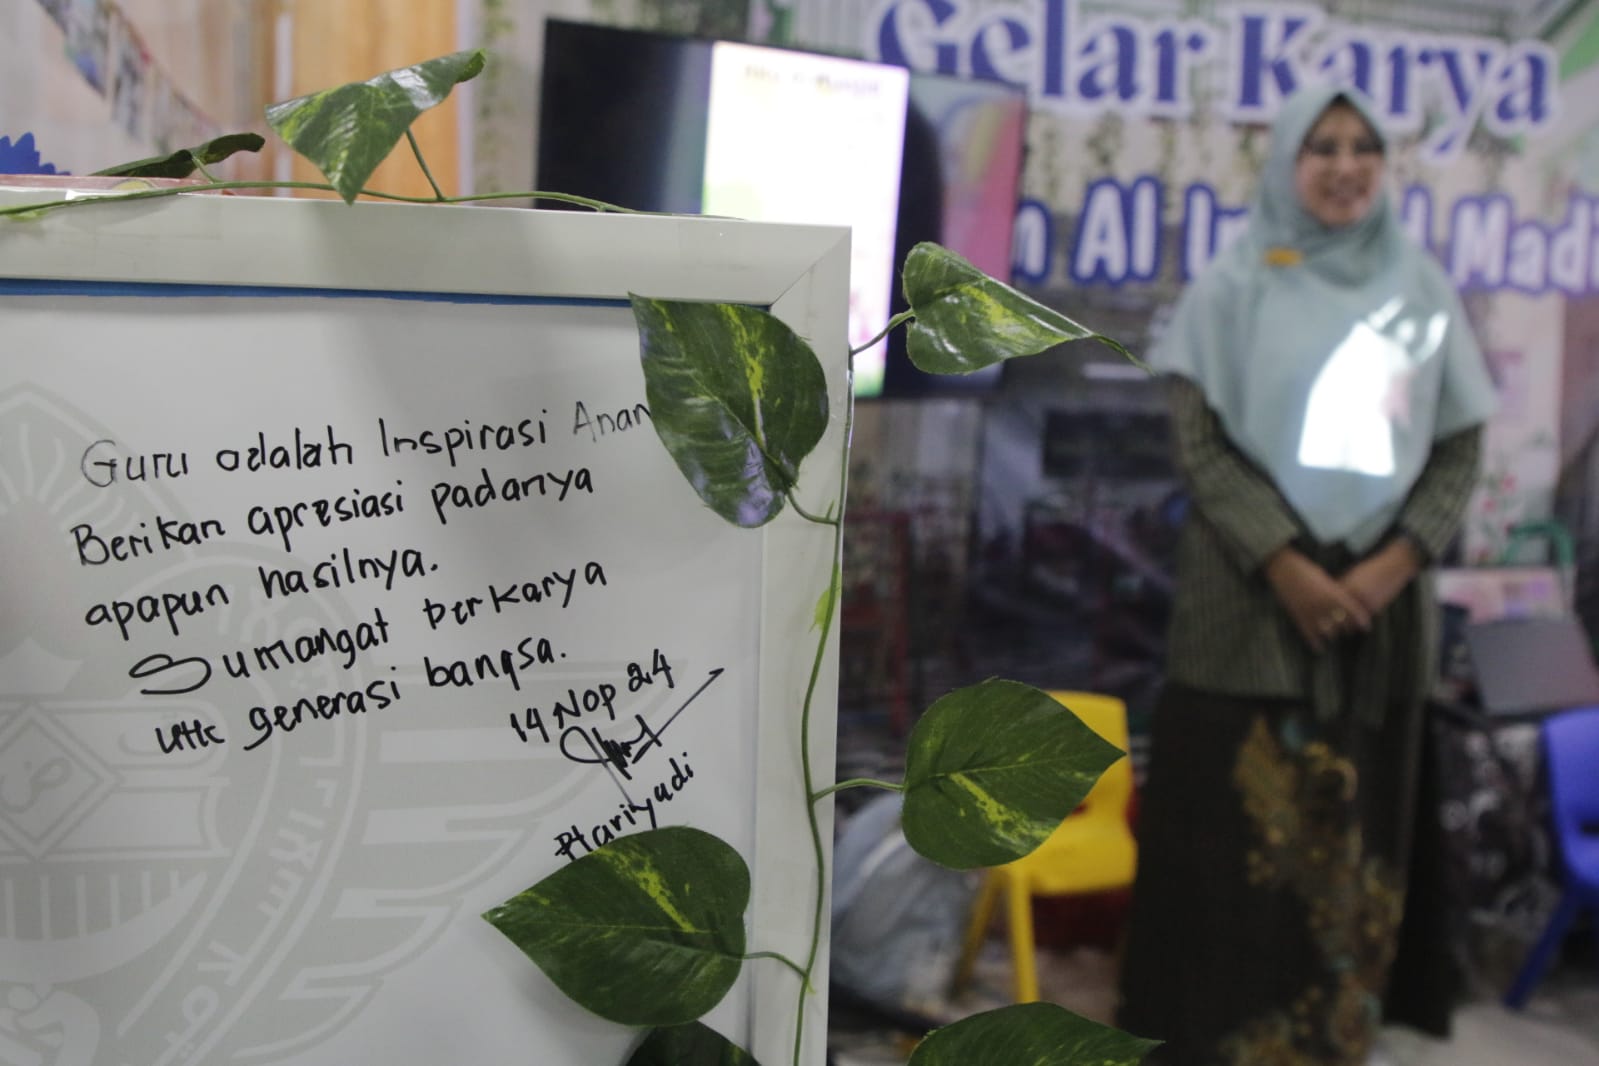 Gelar Karya
Al Madi
Guru adalah Inspirasi Anan
Berikan apresiasi padanya
apapun hasilnya.
Sumangat berkarya
utk generasi bangsa.
14 Nop 24
Hariyadi